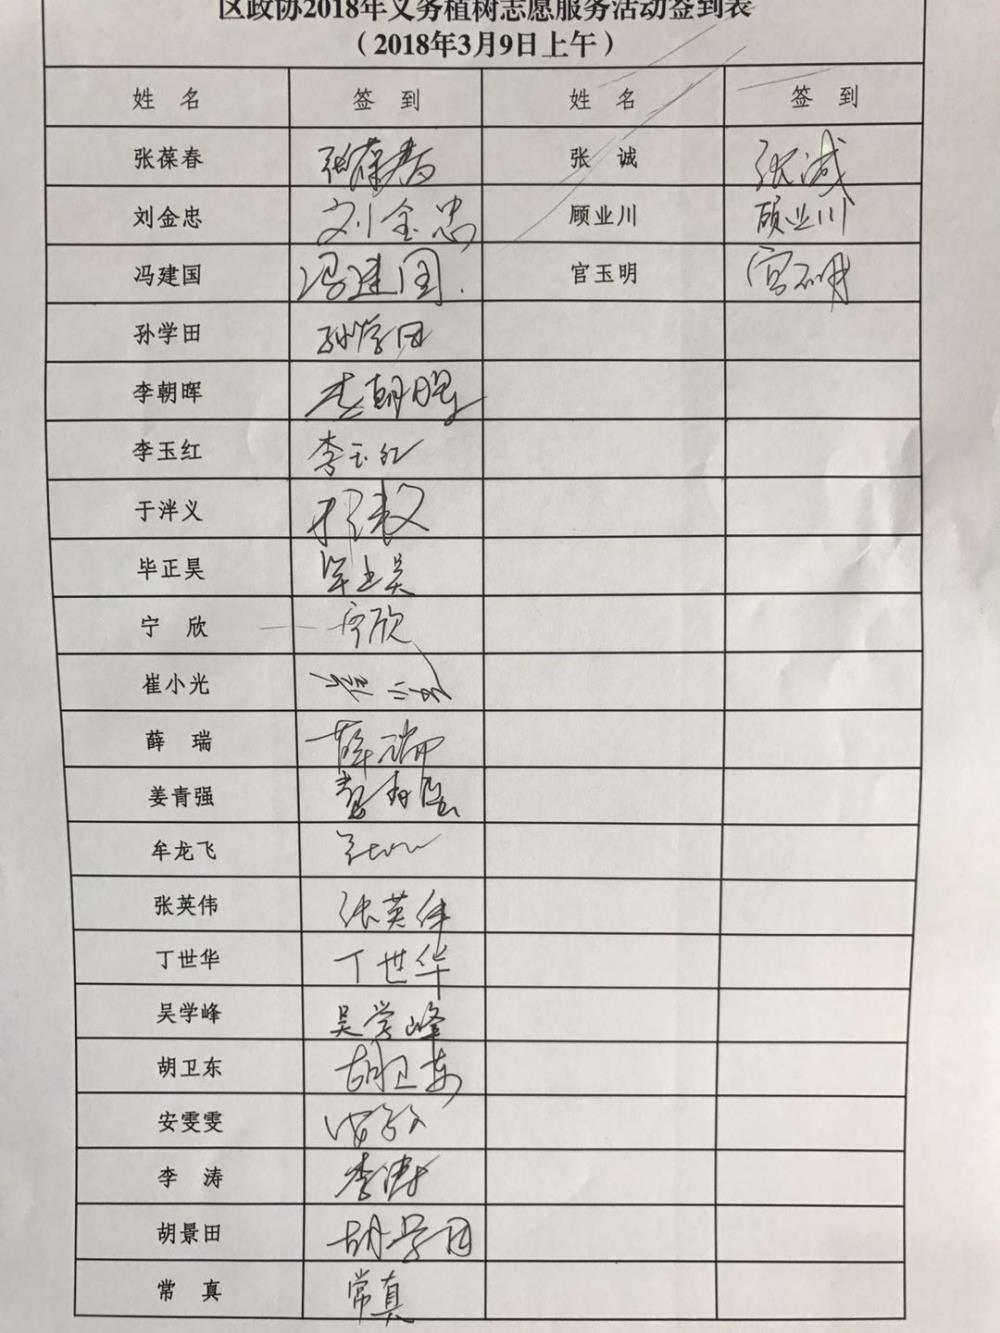 区政协2018年义务植树志愿服务活动签到表
（2018年3月9日上午）
姓 名 签 到 姓 名 签 到
张葆春 张葆春 张 诚 张诚
刘金忠 刘金忠 顾业川 顾业川
冯建国 冯建国 官玉明 官玉明
孙学田 孙学田
李朝晖 李朝晖
李玉红 李玉红
于泮义
毕正昊 毕正昊
宁 欣 宁欣
崔小光
薛 瑞 薛瑞
姜青强
牟龙飞
张英伟 张英伟
丁世华 丁世华
吴学峰 吴学峰
胡卫东 胡卫东
安雯雯
李 涛 李涛
胡景田
常 真 常真